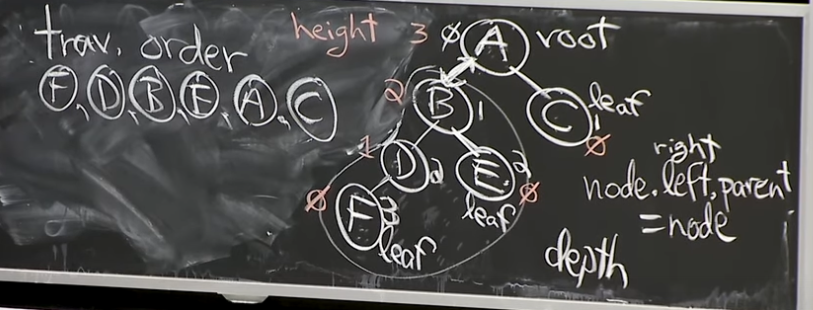 trav. order
F, D, B, E, A, C
height 3 ∅ A root
2 B 1
C leaf 1 ∅
1 D 2
E 2 ∅
leaf
∅ F 3
leaf
right
node.left.parent
=node
depth